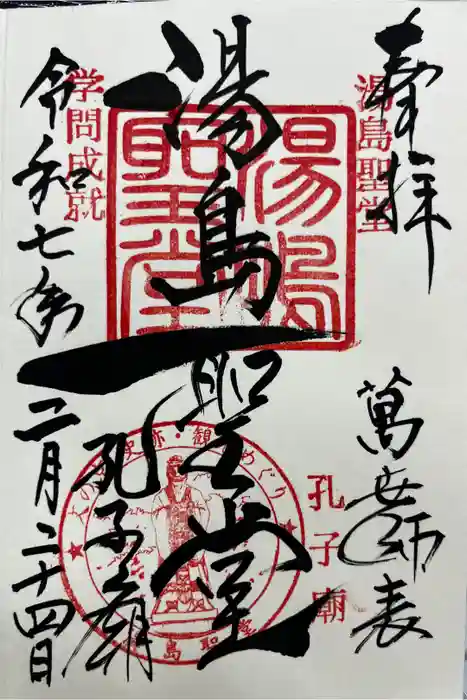 奉拝
湯島聖堂
萬世師表
孔子廟
湯島聖堂
湯島聖堂
孔子廟
学問成就
令和七年二月二十四日